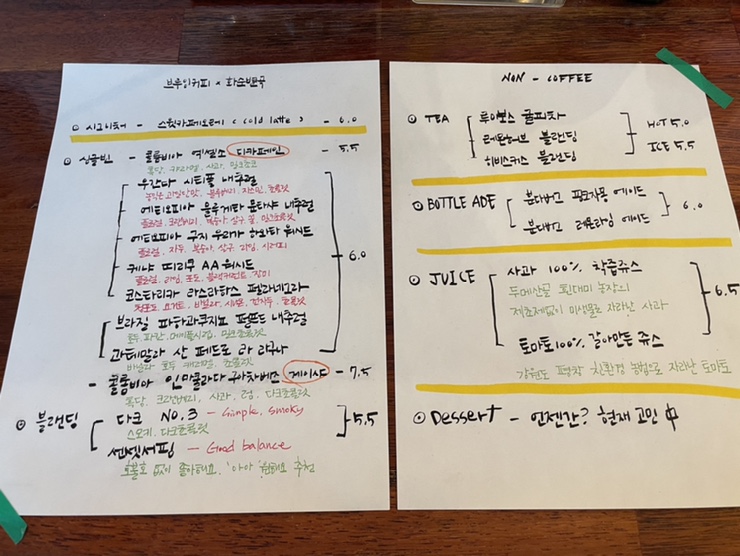 브루잉커피 × 화순번국
⊙ 시그니쳐 - 스윗카페오레 (Cold latte) - 6.0
⊙ 싱글빈 - 콜롬비아 엑셀소 디카페인 - 5.5
흑당, 카라멜, 사과, 밀크초코
우간다 시티풀 내추럴
블루베리, 자스민, 초콜릿
에티오피아 물루게타 문타샤 내추럴
플로럴, 크랜베리, 복숭아, 살구, 꿀, 밀크초콜릿
에티오피아 구지 우라가 하와타 워시드
플로럴, 자두, 복숭아, 살구, 라임
케냐 띠리쿠 AA 워시드
플로럴, 라임, 포도, 블랙커런트, 장미
코스타리카 라스라하스 페를라네그라
요거트, 바닐라, 시나몬, 건자두, 초콜릿
브라질 파하과쿠지뇨 펄프드 내추럴
호두, 피칸, 메이플시럽, 밀크초콜릿
과테말라 산 페드로 라 라구나
바닐라, 호두, 캐러멜, 초콜릿
6.0
- 콜롬비아 인마쿨라다 구아차베즈 게이샤 - 7.5
흑당, 크랜베리, 사과, 럼, 다크초콜릿
⊙ 블랜딩
다크 NO.3 - Simple, smoky
스모키, 다크초콜릿
쎈셋서핑 - Good balance
호불호 없이 좋아해요. '아아' 원해요 추천
5.5
NON - COFFEE
⊙ TEA
루이보스 귤피차
레몬허브 블랜딩
히비스커스 블랜딩
HOT 5.0
ICE 5.5
⊙ BOTTLE ADE
분다버그 핑크자몽 에이드
분다버그 레몬라임 에이드
6.0
⊙ JUICE
사과 100% 착즙쥬스
두메산골 흰대미 농장의
제초제없이 미생물로 자라난 사과
토마토 100% 갈아만든 쥬스
강원도 평창 친환경 농법으로 자라난 토마토
6.5
⊙ Dessert - 언젠간? 현재 고민 中